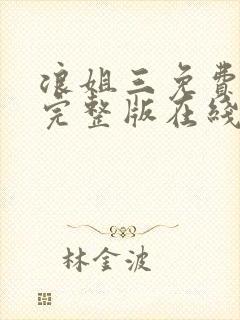 浪姐三免费
完整版在线
林金波